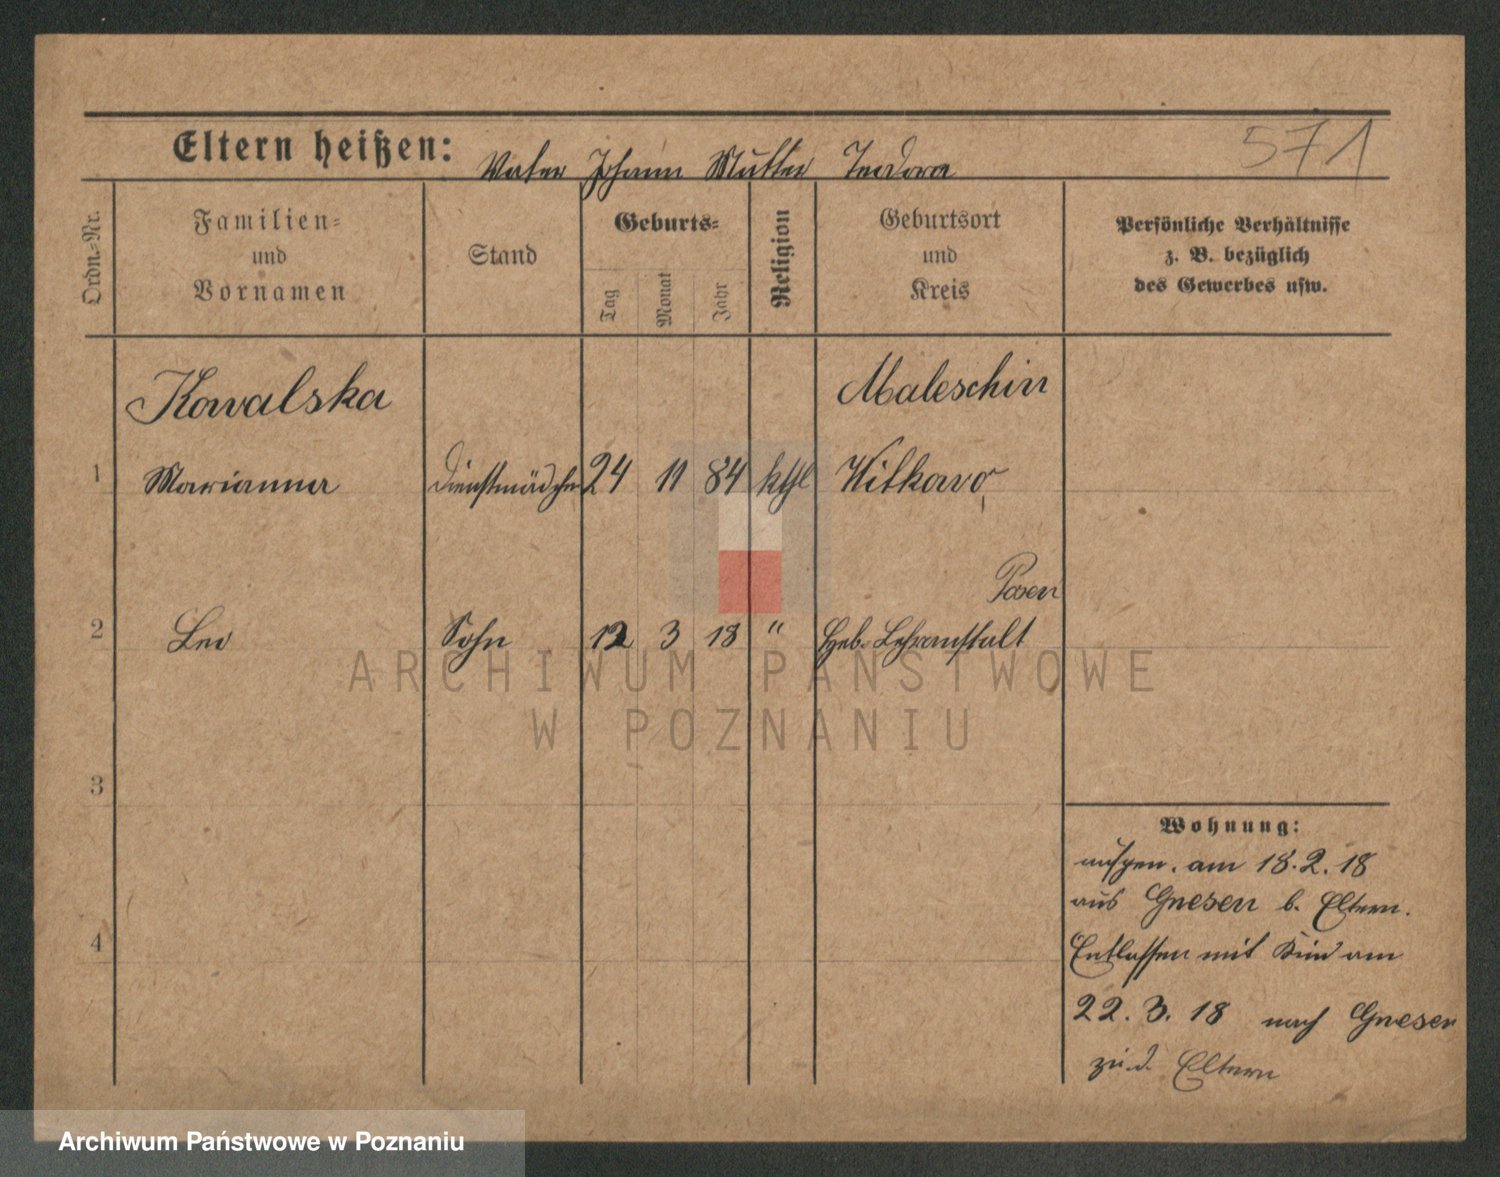 571
Eltern heißen: Vater Johann Mutter Teodora
Ordn.-Nr.
Familien- und Vornamen
Stand
Geburts-
Tag
Monat
Jahr
Religion
Geburtsort und Kreis
Persönliche Verhältnisse
z. B. bezüglich
des Gewerbes usw.
Kowalska Maleschin
1 Marianna Dienstmädchen 24 11 84 kthl Witkowo
Posen
2 Leo Sohn 12 3 18 " Heb. Lehranstalt
3
4
Wohnung:
aufgen. am 18.2.18
aus Gnesen b. Eltern.
Entlassen mit Kind am
22.3.18 nach Gnesen
zu d. Eltern
ARCHIWUM PAŃSTWOWE
W POZNANIU
Archiwum Państwowe w Poznaniu